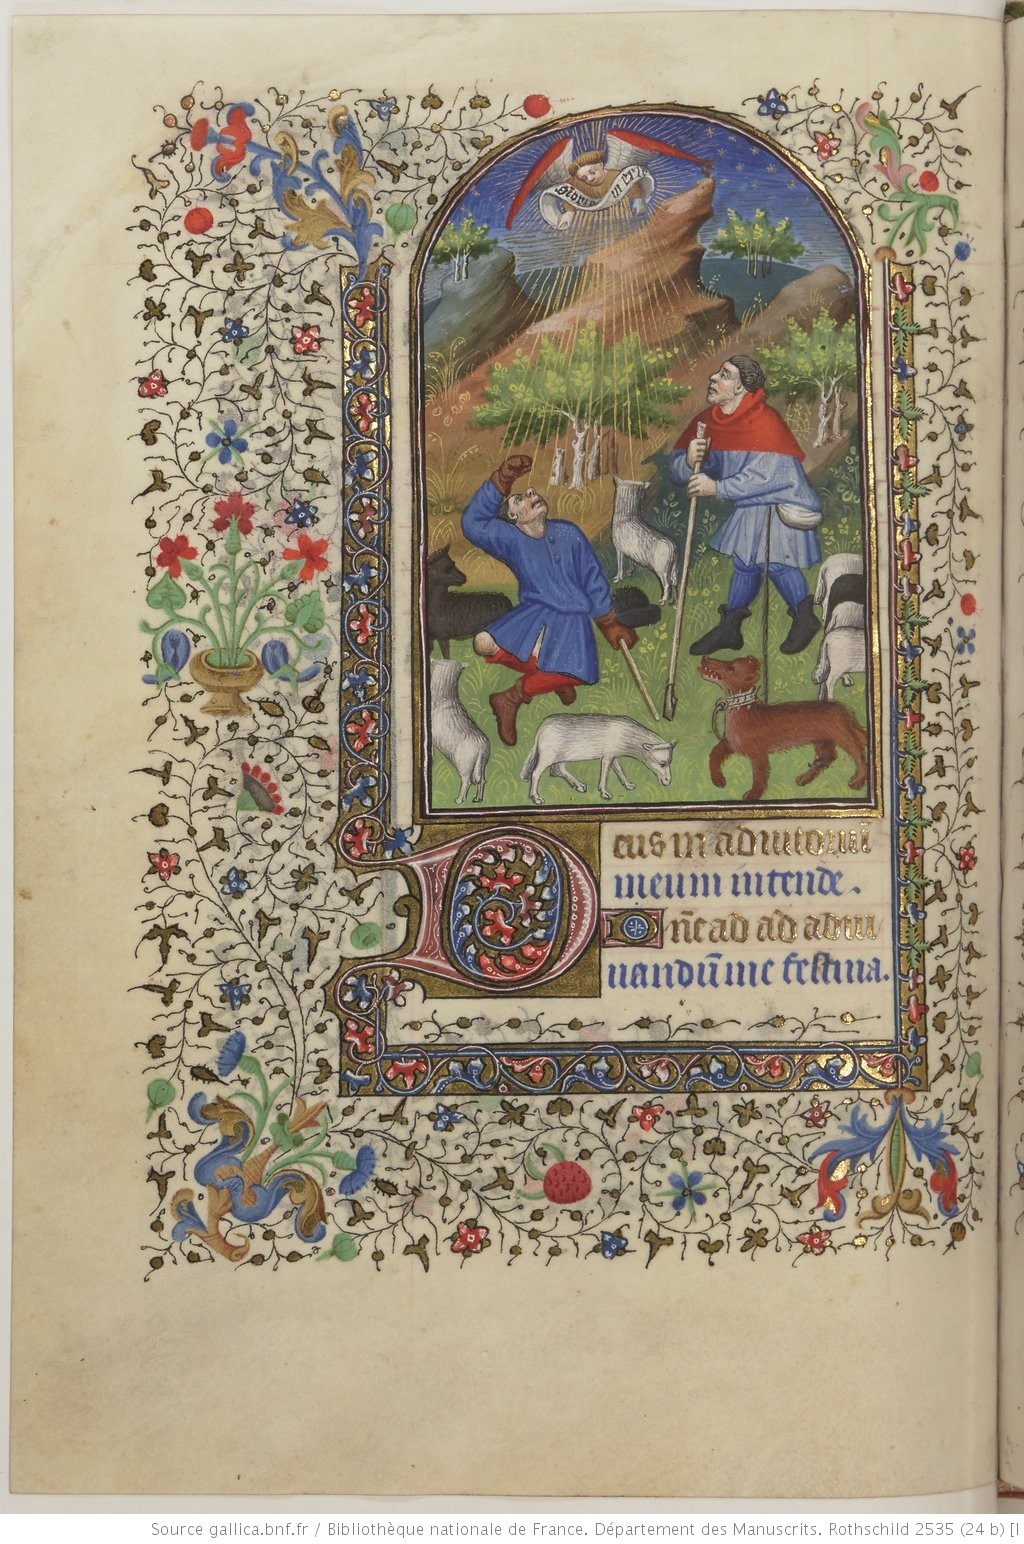 Gloria in ex
Deus in adiutoriū
meum intende.
Dn̄e ad ad adiu
uandū me festina.
Source gallica.bnf.fr / Bibliothèque nationale de France. Département des Manuscrits. Rothschild 2535 (24 b) [I